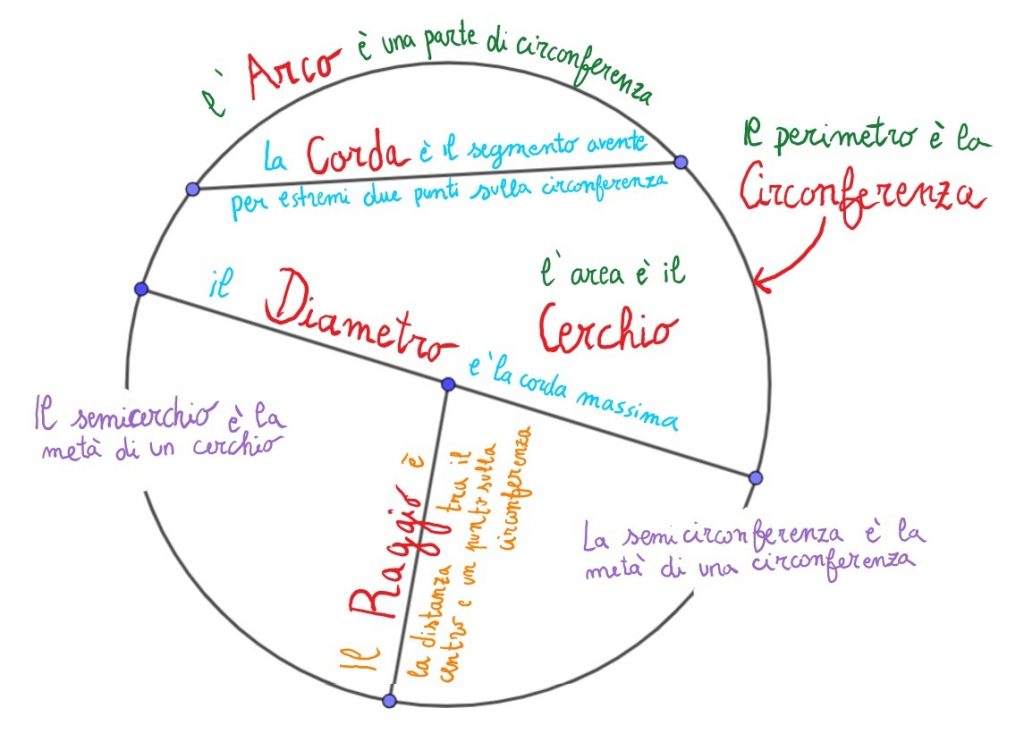 l' Arco è una parte di circonferenza
la Corda è il segmento avente
per estremi due punti sulla circonferenza
Il perimetro è la
Circonferenza
il Diametro è la corda massima
l'area è il
Cerchio
Il semicerchio è la
metà di un cerchio
Il Raggio è
la distanza tra il
centro e un punto sulla
circonferenza
La semicirconferenza è la
metà di una circonferenza